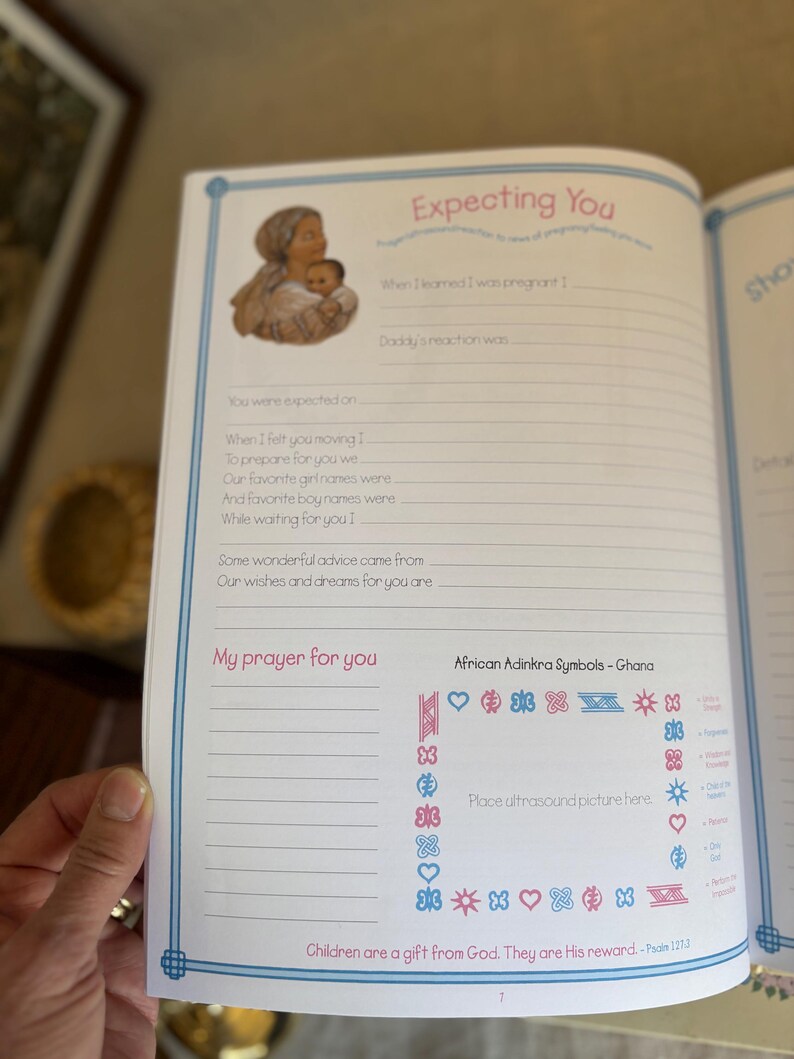 Expecting You
Prayer/ultrasound/reaction to news of pregnancy/feeling you move
When I learned I was pregnant I
Daddy's reaction was
You were expected on
When I felt you moving I
To prepare for you we
Our favorite girl names were
And favorite boy names were
While waiting for you I
Some wonderful advice came from
Our wishes and dreams for you are
My prayer for you
African Adinkra Symbols - Ghana
= Unity is
Strength
= Forgiveness
= Wisdom and
Knowledge
= Child of the
heavens
= Patience
= Only
God
= Perform the
Impossible
Place ultrasound picture here.
Children are a gift from God. They are His reward. - Psalm 127:3
7
Sho
Detai